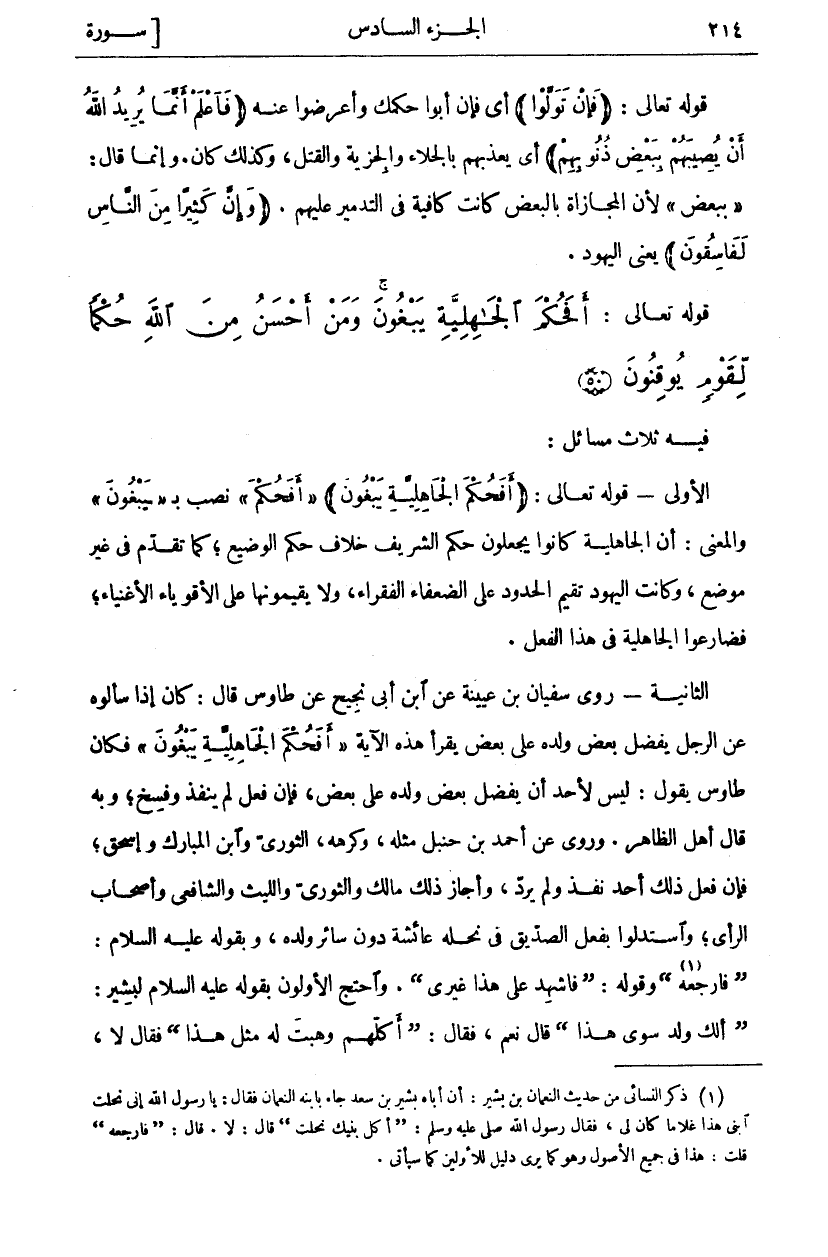 ٢١٤ الجـزء السـادس [ سـورة
قوله تعالى : ﴿فَإِنْ تَوَلَّوْا﴾ أى فإن أبوا حكمك وأعرضوا عنـه ﴿فَٱعْلَمْ أَنَّمَا يُرِيدُ اللهُ
أَنْ يُصِيبَهُمْ بِبَعْضِ ذُنُوبِهِمْ﴾ أى يعذبهم بالجلاء والجزية والقتل، وكذلك كان. وإنمـا قال:
« ببعض » لأن المجـازاة بالبعض كانت كافية فى التدمير عليهم . ﴿وَإِنَّ كَثِيرًا مِنَ النَّاسِ
لَفَاسِقُونَ﴾ يعنى اليهود .
قوله تعـالى : أَفَحُكْمَ ٱلْجَـٰهِلِيَّةِ يَبْغُونَۚ وَمَنْ أَحْسَنُ مِنَ ٱللَّهِ حُكْمًا
لِّقَوْمٍ يُوقِنُونَ ﴿٥٠﴾
فيـه ثلاث مسائل :
الأولى — قوله تعـالى : ﴿أَفَحُكْمَ الْجَاهِلِيَّـةِ يَبْغُونَ﴾ «أَفَحُكْمَ» نصب بـ«ـيَبْغُونَ»
والمعنى : أن الجاهليـة كانوا يجعلون حكم الشريف خلاف حكم الوضيع ؛ كما تقـدّم فى غير
موضع ، وكانت اليهود تقيم الحدود على الضعفاء الفقراء، ولا يقيمونها على الأقوياء الأغنياء؛
فضارعوا الجاهلية فى هذا الفعل .
الثانيـة — روى سفيان بن عيينة عن ٱبن أبى نجيح عن طاوس قال : كان إذا سألوه
عن الرجل يفضل بعض ولده على بعض يقرأ هذه الآية « أَفَحُكْمَ الْجَاهِلِيَّـةِ يَبْغُونَ » فكان
طاوس يقول : ليس لأحد أن يفضل بعض ولده على بعض، فإن فعل لم ينفذ وفسخ؛ وبه
قال أهل الظاهر . وروى عن أحمد بن حنبل مثله ، وكرهه، الثورىّ وٱبن المبارك وإسحق؛
فإن فعل ذلك أحد نفـذ ولم يردّ ، وأجاز ذلك مالك والثورىّ والليث والشافعى وأصحـاب
الرأى؛ وٱسـتدلوا بفعل الصدّيق فى نحـله عائشة دون سائر ولده ، وبقوله عليـه السلام :
” فارجعه(١) “ وقوله : ” فاشهد على هذا غيرى “ . وٱحتج الأولون بقوله عليه السلام لبشير :
” ألك ولد سوى هـذا “ قال نعم ، فقال : ” أَكلَّهـم وهبتَ له مثل هـذا “ فقال لا ،
(١) ذكر النسائى من حديث النعمان بن بشير : أن أباه بشير بن سعد جاء بابنه النعمان فقال : يا رسول الله إنى نحلت
ٱبنى هذا غلاما كان لى ، فقال رسول الله صلى عليه وسلم : ” أكل بنيك نحلت “ قال : لا . قال : ” فارجعه “
قلت : هذا فى جميع الأصول وهو كما يرى دليل للأولين كما سيأتى .